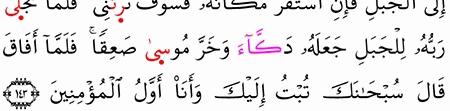 إِلَى ٱلْجَبَلِ فَإِنِ ٱسْتَقَرَّ مَكَانَهُۥ فَسَوْفَ تَرَىٰنِى ۚ فَلَمَّا تَجَلَّىٰ
رَبُّهُۥ لِلْجَبَلِ جَعَلَهُۥ دَكَّآءَ وَخَرَّ مُوسَىٰ صَعِقًا ۚ فَلَمَّآ أَفَاقَ
قَالَ سُبْحَـٰنَكَ تُبْتُ إِلَيْكَ وَأَنَا۠ أَوَّلُ ٱلْمُؤْمِنِينَ ١٤٣